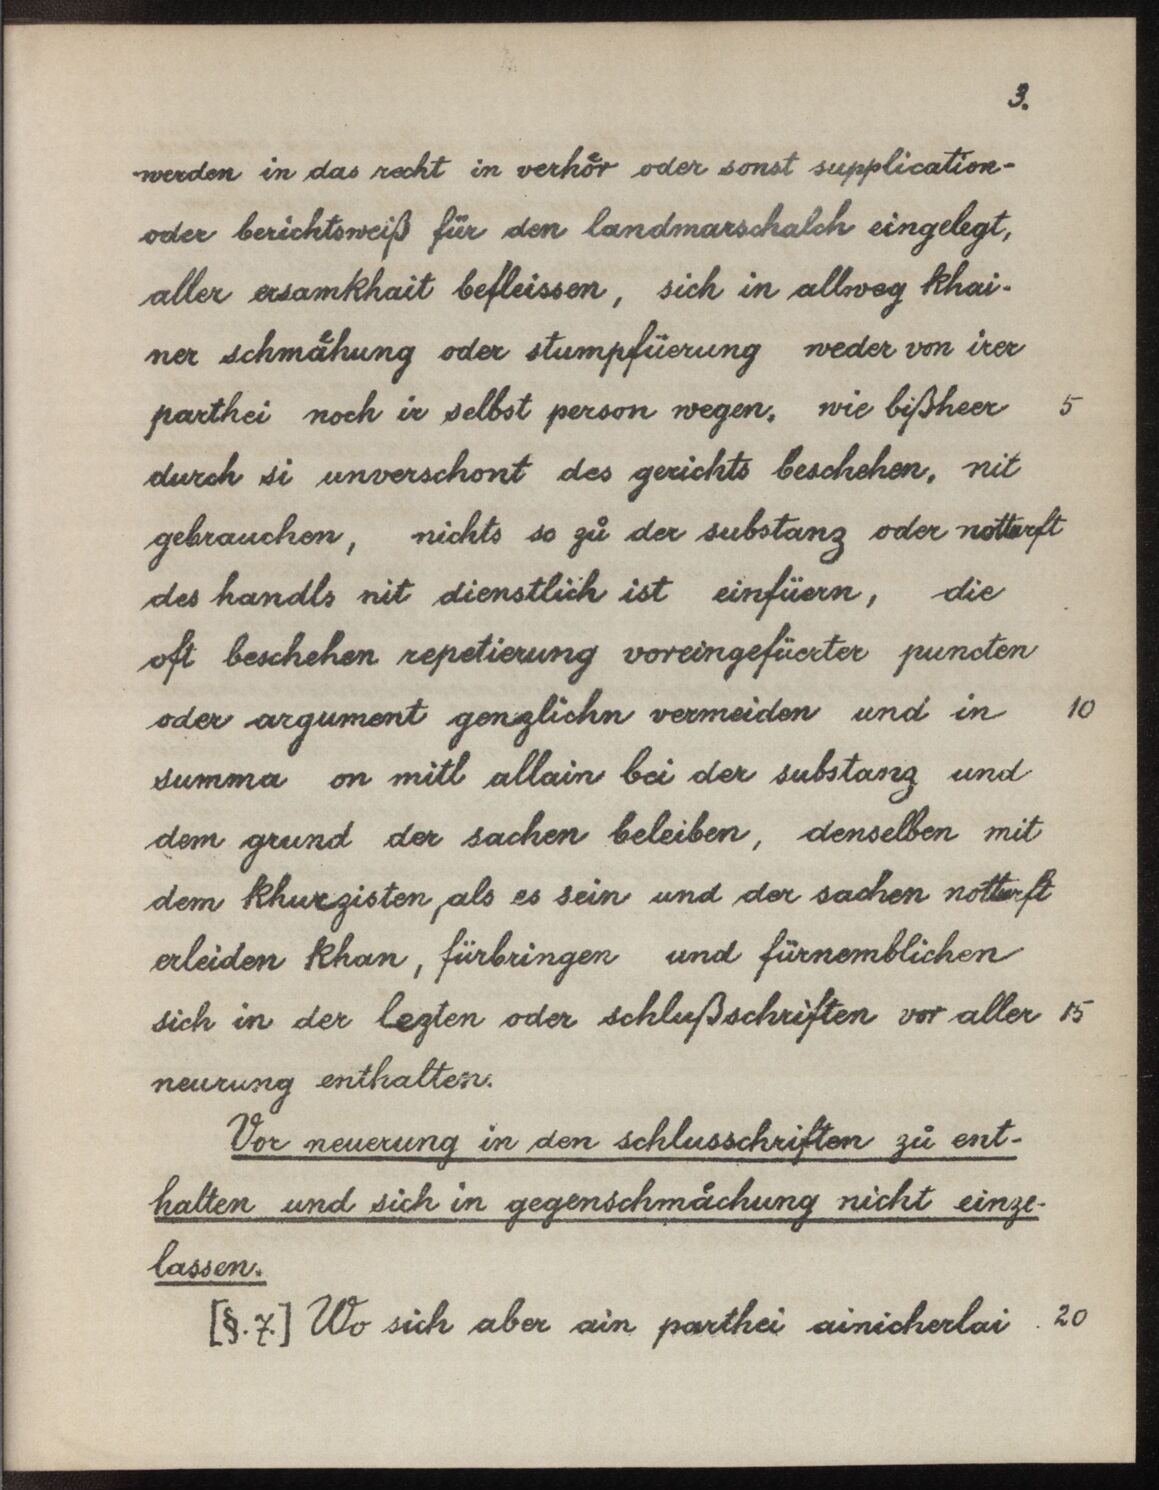 3.
werden in das recht in verhöͤr oder sonst supplication-
oder berichtsweiß für den landmarschalch eingelegt,
aller ersamkhait befleissen, sich in allweg khai-
ner schmaͤhung oder stumpfüerung weder von irer
parthei noch ir selbst person wegen, wie bißheer 5
durch si unverschont des gerichts beschehen, nit
gebrauchen, nichts so zů der substanz oder notturft
des handls nit dienstlich ist einfüern, die
oft beschehen repetierung voreingefüerter puncten
oder argument genzlichn vermeiden und in 10
summa on mitl allain bei der substanz und
dem grund der sachen beleiben, denselben mit
dem khurzisten, als es sein und der sachen notturft
erleiden khan, fürbringen und fürnemblichen
sich in der lezten oder schlußschriften vor aller 15
neurung enthalten.
Vor neuerung in den schlusschriften zů ent-
halten und sich in gegenschmåchung nicht einze-
lassen.
[§. 7.] Wo sich aber ain parthei ainicherlai 20